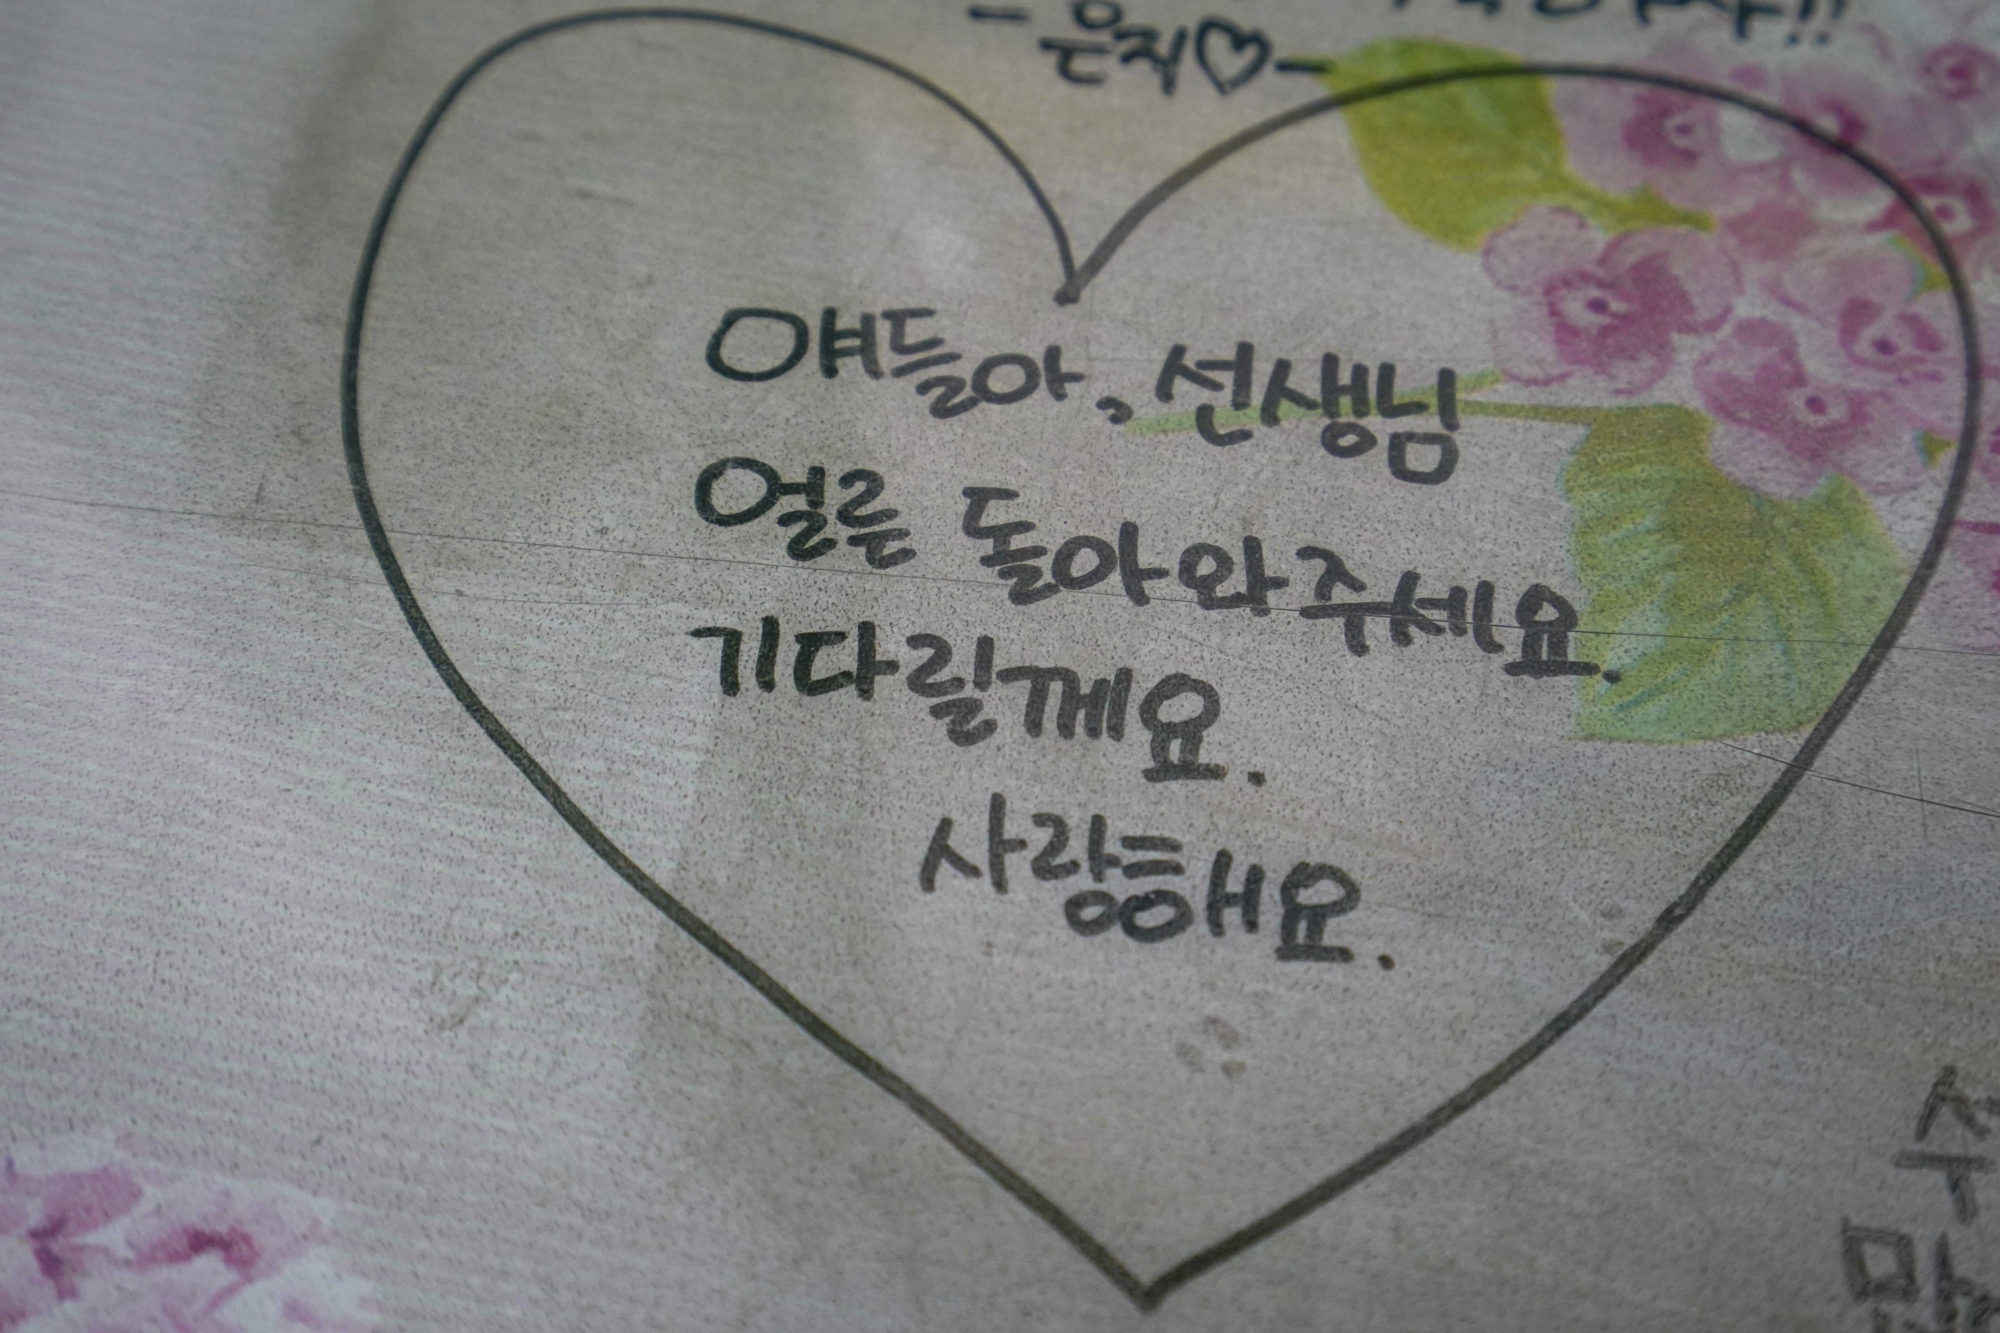 얘들아, 선생님
얼른 돌아와주세요.
기다릴께요.
사랑해요.